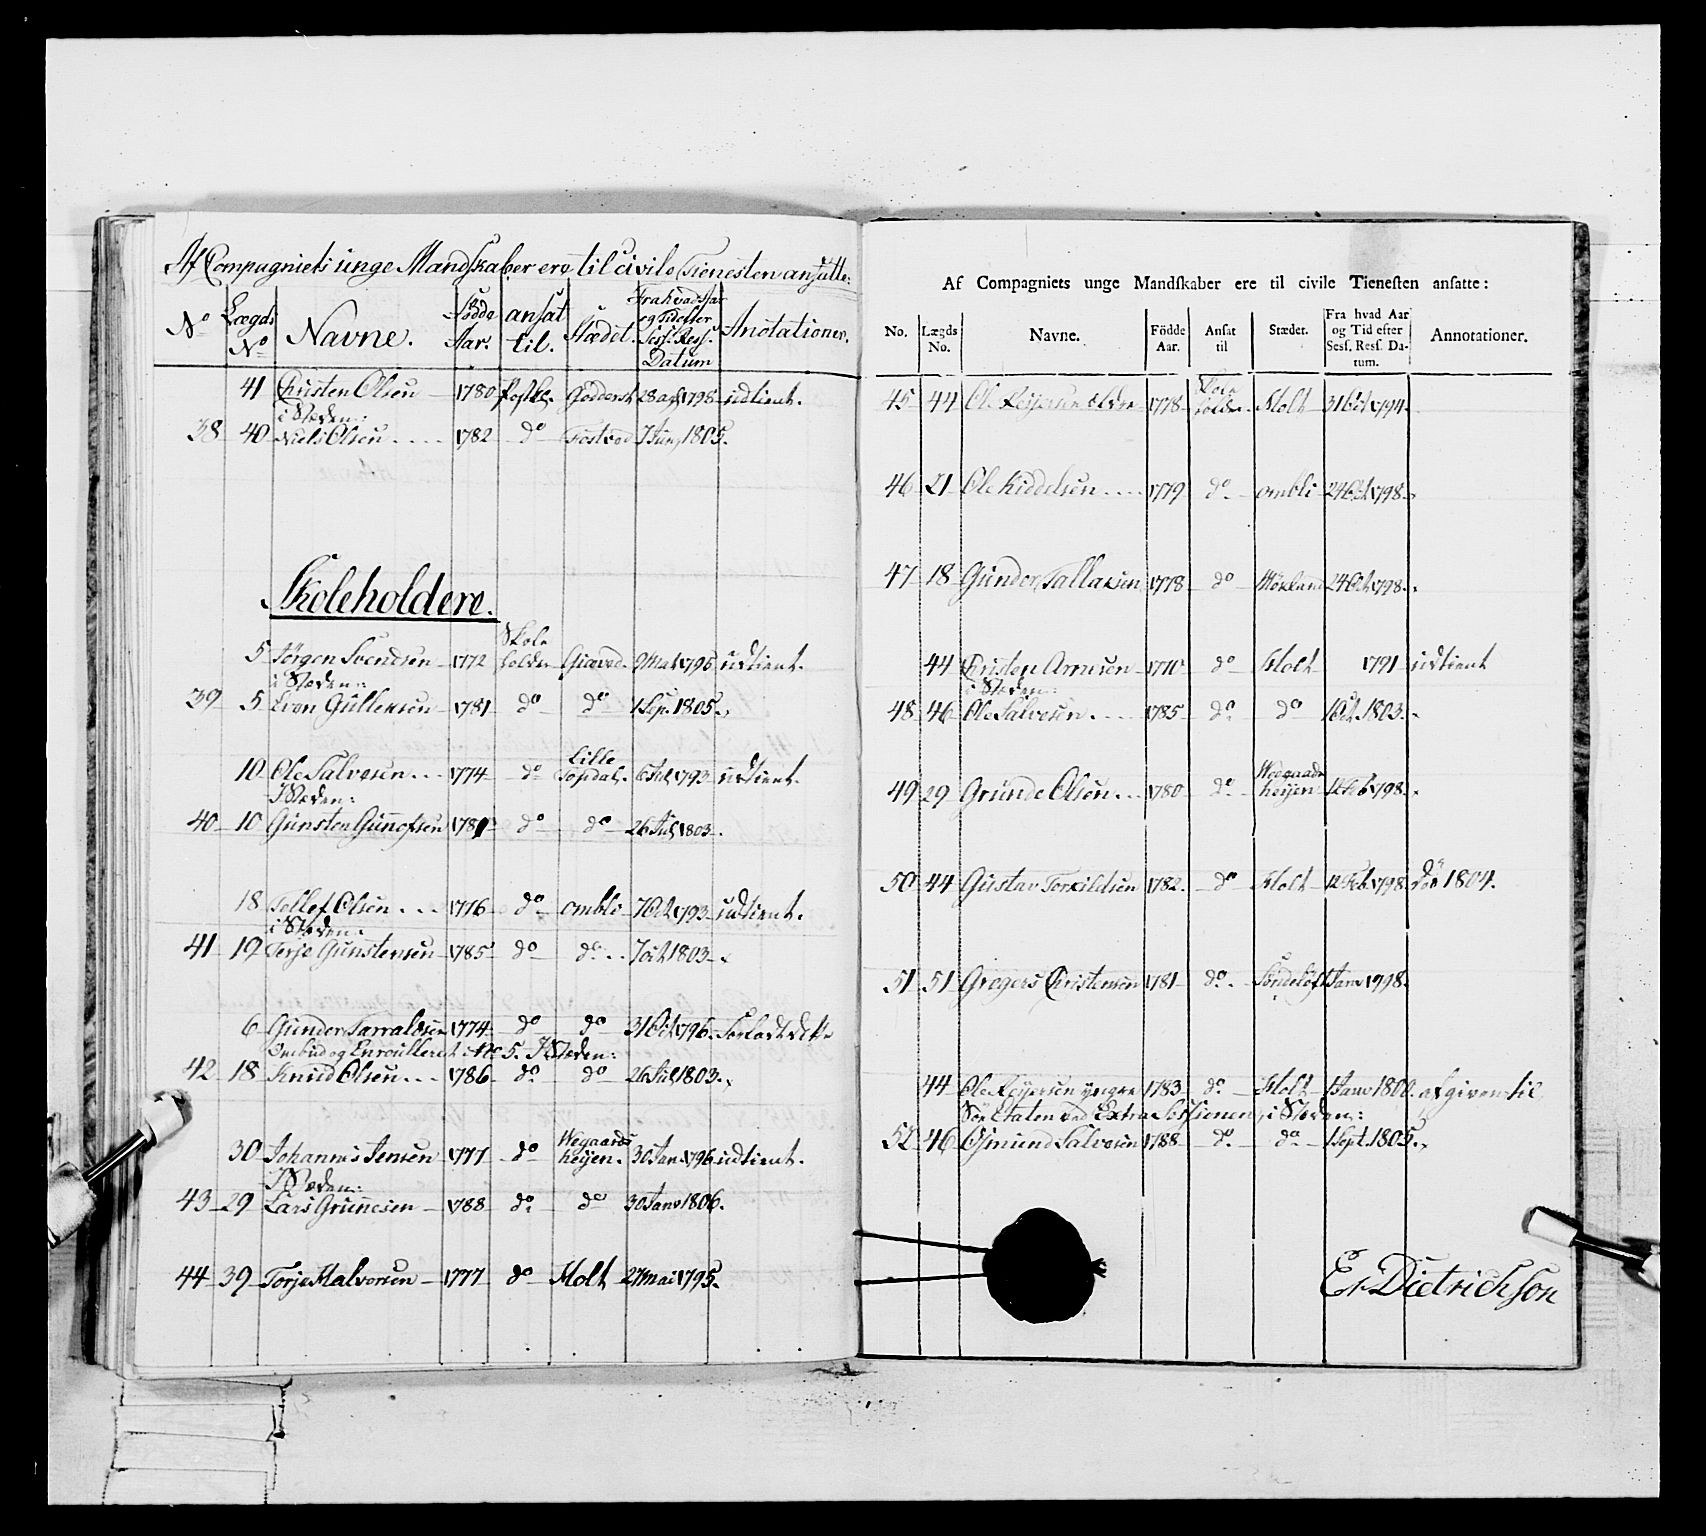 Af Compagniets unge Mandskaber ere til civile Tienesten ansatte:
No Lægds No Navne. Födde Aar. ansat til. Stædet. Fra hvad Aar og Tid efter Sess. Ress. Datum Anotationer.
41 Christen Olsen 1780 1798 udtient.
i Stæden:
38 40 Niels Olsen 1782 do Fostved 7 Juny 1805.
Skoleholdere.
5 Jörgen Svendsen 1772 Skole holder 1795 udtient.
i Stæden:
39 5 Even Gullensen 1781 do do 1 Sep. 1805.
10 Ole Salvesen 1774 do Lille Topdal. 1793 udtient.
I Stæden:
40 10 Gunsten do do 26 Jul 1803.
18 Tollef Olsen 1776 do omblie 7 Oct 1793 udtient.
i Stæden:
41 19 Terje Gunstensen 1785 do do 7 oct 1803
6 Gunder Tarraldsen 1774 do do 31 Oct 1796
Ombud og Enroulleret No 5. I Stæden:
42 18 Knud Olsen 1786 do do 26 Jul 1803.
30 Johannes Jensen 1777 do Wegaards heyen. 30 Jan 1796 udtient.
I Stæden:
43 29 Lars Grunesen 1788 do do 30 Janv 1806.
44 39 Torje Halvorsen 1777 do Holt 27 mai 1795.
Af Compagniets unge Mandskaber ere til civile Tienesten ansatte:
No. Lægds No. Navne. Födde Aar. Ansat til Stædet. Fra hvad Aar og Tid efter Sess. Ress. Datum. Annotationer.
45 44 Ole Reyersen eldre 1778 Skole holder Holt 31 Oct 1794.
46 21 Ole Kiddelsen 1779 do ombli 24 Oct 1798.
47 18 Gunder Tallaksen 1778 do 24 Oct 1798.
44 Christen Arnesen 1770 do Holt 1791 udtient
i Stæden:
48 46 Ole Salvesen 1785 do do 1 Oct. 1803.
49 29 Grunde Olsen 1780 do Weegaards heyen 12 Feb 1798.
50 44 Gustav Torkildsen 1782. do Holt 12 Feb. 1798 död 1804.
51 51 Gregers Christensen 1781 do Janv 1798.
44 Ole Reyersen yngre 1783 do Holt 1 Janv 1800. afgiven til
Söe Etaten ved Extra Sessionen, i Stæden:
52 46 Osmund Salvesen 1788 do do 1 Sept. 1805.
Er Dietrichson